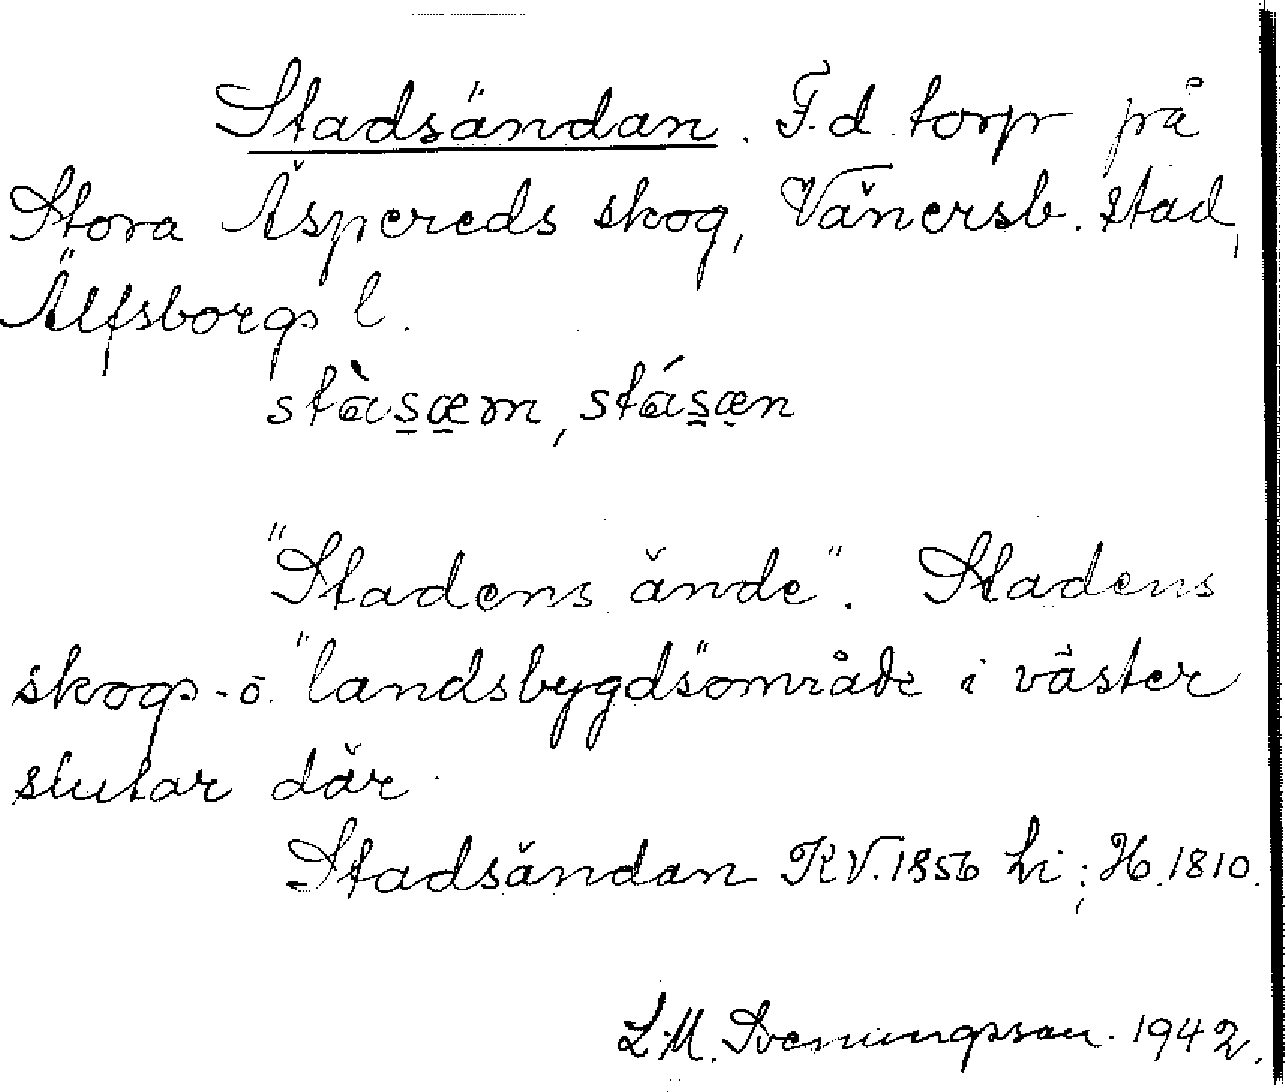 Stadsändan. F.d. torp på
Stora Äspereds skog, Vänersb. stad,
Älfsborgs l.
stàs̠æ̠m, stás̠æ̣n
"Stadens ände". Stadens
skogs- o. "landsbygds"område i väster
slutar där.
Stadsändan K.V. 1856 hi; H. 1810.
L.M. Svenungsson. 1942.